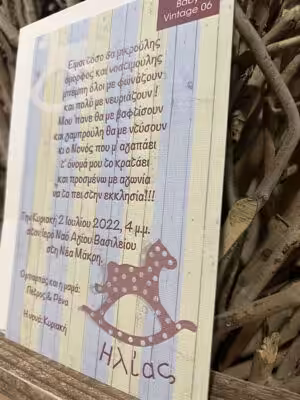 Baby
Vintage 06
Είμαι τόσο δα μικρούλης
όμορφος και νοστιμούλης
μπέμπη όλοι με φωνάζουν
και πολύ με νευριάζουν !
Μου 'πανε θα με βαφτίσουν
και γαμπρούλη θα με ντύσουν
κι ο Νονός που μ' αγαπάει
τ' όνομά μου το κρατάει
και προσμένω με αγωνία
να το πει στην εκκλησία!!!
Την Κυριακή 2 Ιουλίου 2022, 4 μ.μ.
στον Ιερό Ναό Αγίου Βασιλείου
στη Νέα Μάκρη.
Ο μπαμπάς και η μαμά:
Πέτρος & Ρένα
Η νονά: Κυριακή
Ηλίας